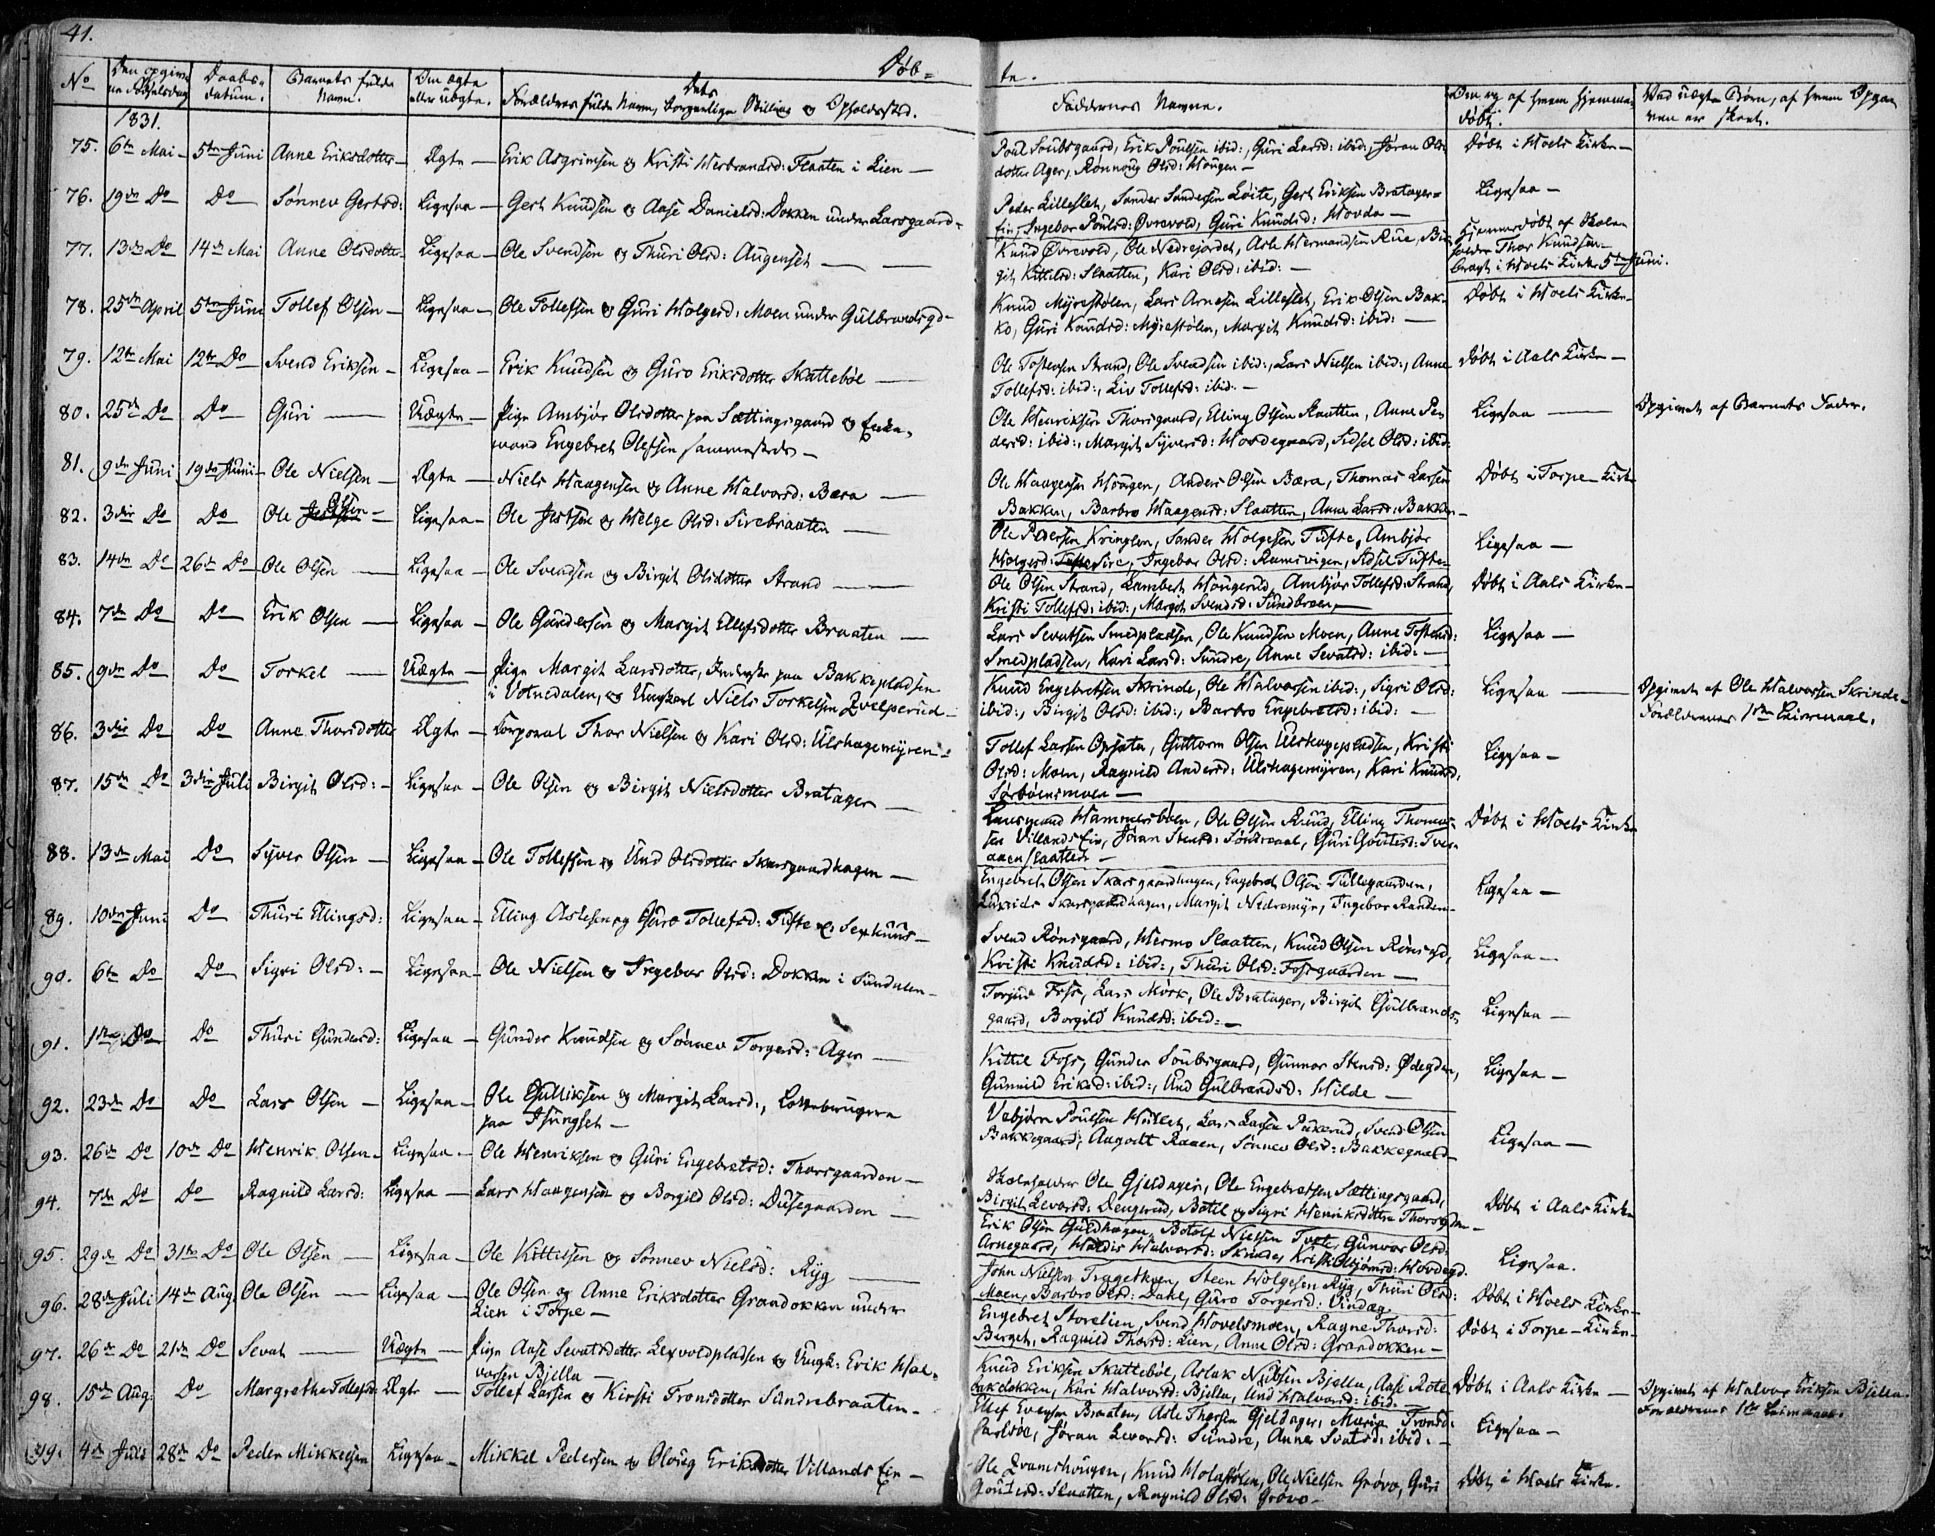 41.
Døb= te.
No
Den opgivne Fødselsdag
Daabs=datum.
Barnets fulde Navn.
Om ægte eller uægte.
Dets Forældres fulde Navn, borgerlige Stilling og Opholdssted.
Faddernes Navne.
Om og af hvem hjemmedøbt.
Ved uægte Børn, af hvem Opgaven er skeet.
1831.
75. 6te Mai 5te Juni Anne Eriksdotter Ægte Erik Asgrimsen og Kristi Herbrandsd: Flaaten i Lien
Poul Soubsgaard, Erik Poulsen ibid:, Guri Larsd: ibid:, Jøran Ols-
dotter Ager, Rønnoug Olsd: Hougen Døbt i Hoels Kirke
76. 19de Do Do Sønnev Gertsd: Ligesaa Gert Knudsen og Aase Danielsd: Dokken under Larsgaard
Peder Lilleslet, Sander Sandersen Løite, Gert Eriksen Bratager=
Eie, Ingebor Poulsd: Øvrevold, Guri Knudsd: Hovda Ligesaa
77. 13de Do 14de Mai Anne Olsdotter Ligesaa Ole Svendsen og Thuri Olsd: Augeset
Knud Øvrevold, Ole Nedrejordet, Asle Hermandsen Rue, Bir-
git Kittilsd: Slaatten, Kari Olsd: ibid:
Hjemmedøbt af Skole
holder Thor Knudsen
bragt i Hoels Kirke 5te Juni.
78. 25de April 5te Juni Tollef Olsen Ligesaa Ole Tollefsen og Guri Holgersd: Moen under Gulbrandsgd
Knud Myrestølen, Lars Arnesen Lilleslet, Erik Olsen Bak-
ko, Guri Knudsd: Myrestølen, Margit Knudsd: ibid: Døbt i Hoels Kirke
79. 12te Mai 12te Do Svend Eriksen Ligesaa Erik Knudsen og Guro Eriksdotter Skattebøe
Ole Tostensen Strand, Ole Svendsen ibid:, Lars Nielsen ibid:, Anne
Tollefsd: ibid:, Liv Tollefsd: ibid: Døbt i Aals Kirke
80. 25de Do Do Guri Uægte Pige Ambjør Olsdotter paa Sættingsgaard og Enke-
mand Engebret Olefsen sammesteds
Ole Henriksen Thorsgaard, Elling Olsen Slaatten, Anne Pe-
dersd: ibid:, Margit Syversd: Hovdegaard, Sidsel Olsd: ibid Ligesaa Opgivet af Barnets Fader.
81. 9de Juni 19de Juni Ole Nielsen Ægte Niels Haagensen og Anne Halvorsd: Bæra
Ole Haagensen Hougen, Anders Olsen Bæra, Thomas Larsen
Bakken, Barbro Haagensd: Slaatten, Anne Larsd: Bakken Døbt i Torpe Kirke
82. 3die Do Do Ole Olsen Ligesaa Ole Jestsen og Helge Olsd: Sirebraaten
Ole Pedersen Kringlen, Sander Holgesen Tufte, Ambjør
Holgesd: Sire, Ingebor Olsd: Ramsvigen, Sidsel Tufte Ligesaa
83. 14de Do 26de Do Ole Olsen Ligesaa Ole Svendsen og Birgit Olsdotter Strand
Ole Olsen Strand, Lambert Hougerud, Ambjør Tollefsd: Strand,
Kristi Tollefsd: ibid:, Margit Svendsd: Sundbroen Døbt i Aals Kirke
84. 7de Do Do Erik Olsen Ligesaa Ole Gundersen og Margit Ellefsdotter Braaten
Lars Sevatsen Smedpladsen, Ole Knudsen Moen, Anne Tostensd:
Smedpladsen, Kari Larsd: Sundre, Anne Sevatsd: ibid: Ligesaa
85. 9de Do Do Torkel Uægte Pige Margit Larsdotter, Inderste paa Bakkepladsen
i Votnedalen, og Ungkarl Niels Torkelsen Qvelperud
Knud Engebretsen Skrinde, Ole Halvorsen ibid:, Sigri Olsd:
ibid:, Birgit Olsd: ibid:, Barbro Engebretsd: ibid: Ligesaa Opgivet af Ole Halvorsen Skrinde
Forældrenes 1ste Leiermaal.
86. 3die Do Do Anne Thorsdotter Ægte Corporal Thor Nielsen og Kari Olsd: Ulshagemyren
Tollef Larsen Opsata, Guttorm Olsen Ulshagepladsen, Kristi
Olsd: Moen, Ragnild Andersd: Ulshagemyren, Kari Knudsd,
Sørbøensmoen Ligesaa
87. 15de Do 3die Juli Birgit Olsd: Ligesaa Ole Olsen og Birgit Nielsdotter Bratager
Hammersbøen, Ole Olsen Ruud, Elling Thomas-
sen Villands Eie, Jøran Stensd: Søndreaal, Guri
Døbt i Hoels Kirke
88. 13de Mai Do Syver Olsen Ligesaa Ole Tollefsen og Und Olsdotter Skarsgaardhagen
Engebret Olsen Skarsgaardhagen, Engebret Olsen Tullegaarden,
Skarsgaardhagen, Margit Nedremyr, Ingebor Randen Ligesaa
89. 10de Juni Do Thuri Ellingsd: Ligesaa Elling Aslesen og Guro Tollefsd: Tufte
Svend Rønsgaard, Hermo Slaatten, Knud Olsen Rønsgd,
Kristi Knudsd: ibid:, Thuri Olsd: Fosgaarden Ligesaa
90. 6te Do Do Sigri Olsd: Ligesaa Ole Nielsen og Ingebor Olsd: Dokken i Sundalen
Torjus Foss, Lars Mørk, Ole Bratager, Birgit Gulbrands-
gaard, Borgild Knudsd: ibid: Ligesaa
91. 1ste Do Do Thuri Gundersd: Ligesaa Gunder Knudsen og Sønnev Torgersd: Ager
Kittil Foss, Gunder Soubsgaard, Gunnor Stensd: Ødegden,
Gunnild Eriksd: ibid:, Und Gulbrandsd: Hilde Ligesaa
92. 23de Do Do Lars Olsen Ligesaa Ole Gulliksen og Margit Larsd:,
paa
Vebjørn Poulsen Hullet, Lars Larsen Pukerud, Svend Olsen
Bakkegaard, Augodt Raaen, Sønnev Olsd: Bakkegaard Ligesaa
93. 26de Do 10de Do Henrik Olsen Ligesaa Ole Henriksen og Guri Engebretsd: Thorsgaarden
Skoleholder Ole Gjeldager, Ole Engebretsen Sættingsgaard,
Birgit Levorsd: Dengerud, Botil og Sigri Henriksdøttre Thorsgden Døbt i Aals Kirke
94. 7de Do Do Ragnild Larsd: Ligesaa Lars Haagensen og Borgild Olsd: Dusegaarden
Erik Olsen Guldhagen, Botolf Nielsen Tvete, Gunvor Olsd:
Arnegaard, Haldis Halvorsd: Skrinde, Kristi Hovdegd. Ligesaa.
95. 29de Do 31te Do Ole Olsen Ligesaa Ole Kittelsen og Sønnev Nielsd: Ryg
John Nielsen Tragethoen, Steen Holgesen Ryg, Thuri Olsd:
Moen, Barbro Olsd: Dahl, Guro Torgersd: Vindeg Døbt i Hoels Kirke
96. 28de Juli 14de Aug. Ole Olsen Ligesaa Ole Olsen og Anne Eriksdotter Grandokken under
Lien i Torpe
Engebret Storelien, Svend Hovelsmoen, Ragne Thorsd:
Berget, Ragnild Thorsd: Lien, Anne Olsd: Grandokken Døbt i Torpe Kirke
97. 26de Do 21de Do Sevat Uægte Pige Aase Sevatsdotter Lexvoldpladsen og Ungk: Erik Hal-
vorsen Bjella
Knud Eriksen Skattebøl, Aslak Nielsen Bjella, Aase Rote-
bakdokken, Kari Halvorsd: Bjella, Und Halvorsd: ibid. Døbt i Aals Kirke Opgivet af Halvor Eriksen Bjella.
Forældrenes 1ste Leiermaal.
98. 15de Aug. Do Margrethe Tollefsd: Ægte Tollef Larsen og Kirsti Tronsdotter Sundrebraaten
Ellef Evensen Braaten, Asle Thorsen Gjeldager, Maria Tronsd:
Jarlsøe, Jøran Levorsd: Sundre, Anne Svatsd: ibid: Ligesaa
99. 4de Juli 28de Do Peder Mikkelsen Ligesaa Mikkel Pedersen og Oloug Eriksdotter Villands Eie
Ole Qvamshougen, Knud Holastølen, Ole Nielsen Grøvo, Guri
Slaatten, Ragnild Olsd: Grøvo Døbt i Hoels Kirke.